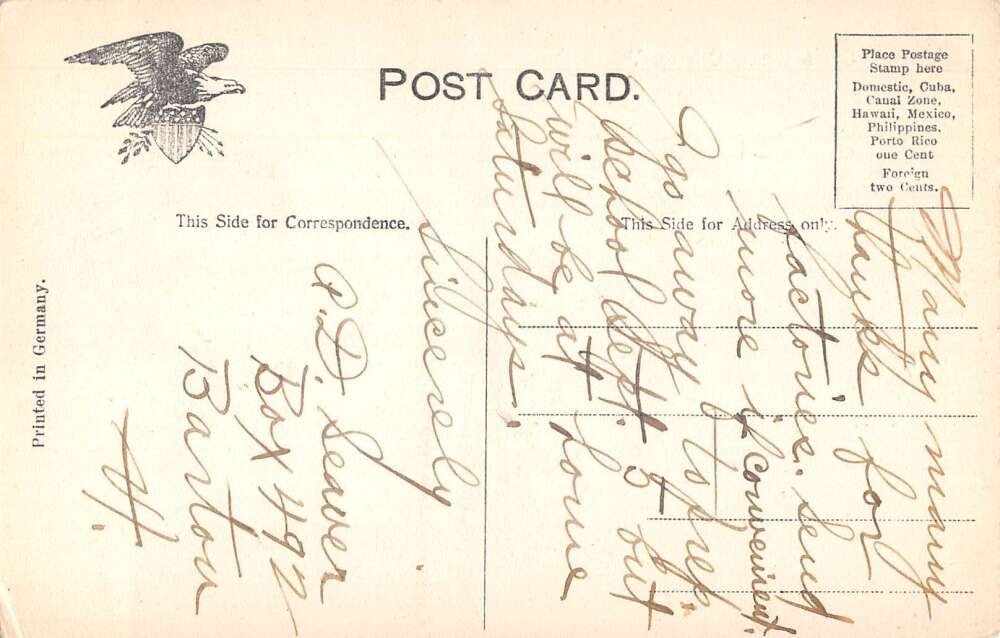 POST CARD.
Place Postage
Stamp here
Domestic, Cuba,
Canal Zone,
Hawaii, Mexico,
Philippines.
Porto Rico
one Cent
Foreign
two Cents.
This Side for Correspondence.
This Side for Address only.
Printed in Germany.
Many many
thanks for
factories. Send
more if convenient.
I go away to prep.
school Sept. 5 but
will be at home
Saturdays.
Sincerely
P.D. Seaver
Box 492
Barton